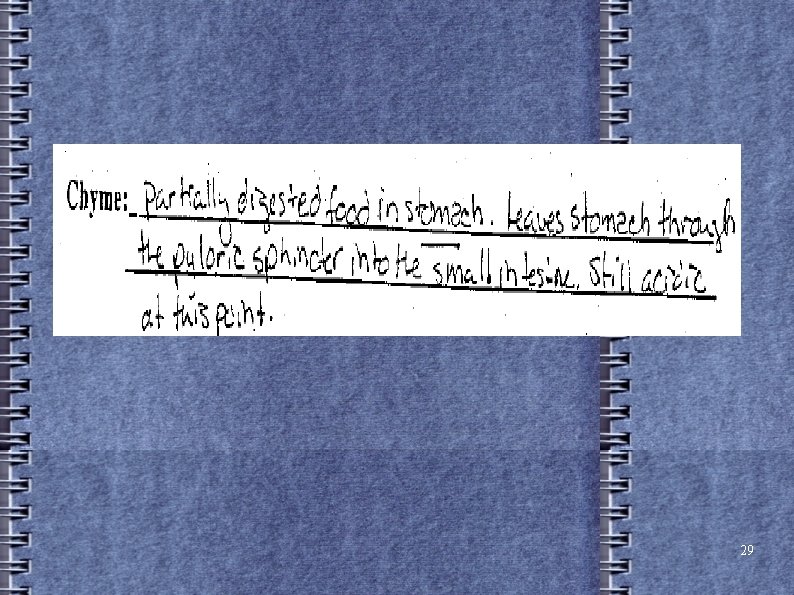 Chyme: Partially digested food in stomach. Leaves stomach through
the puloric sphincter into the small intestine. Still acidic
at this point.
29